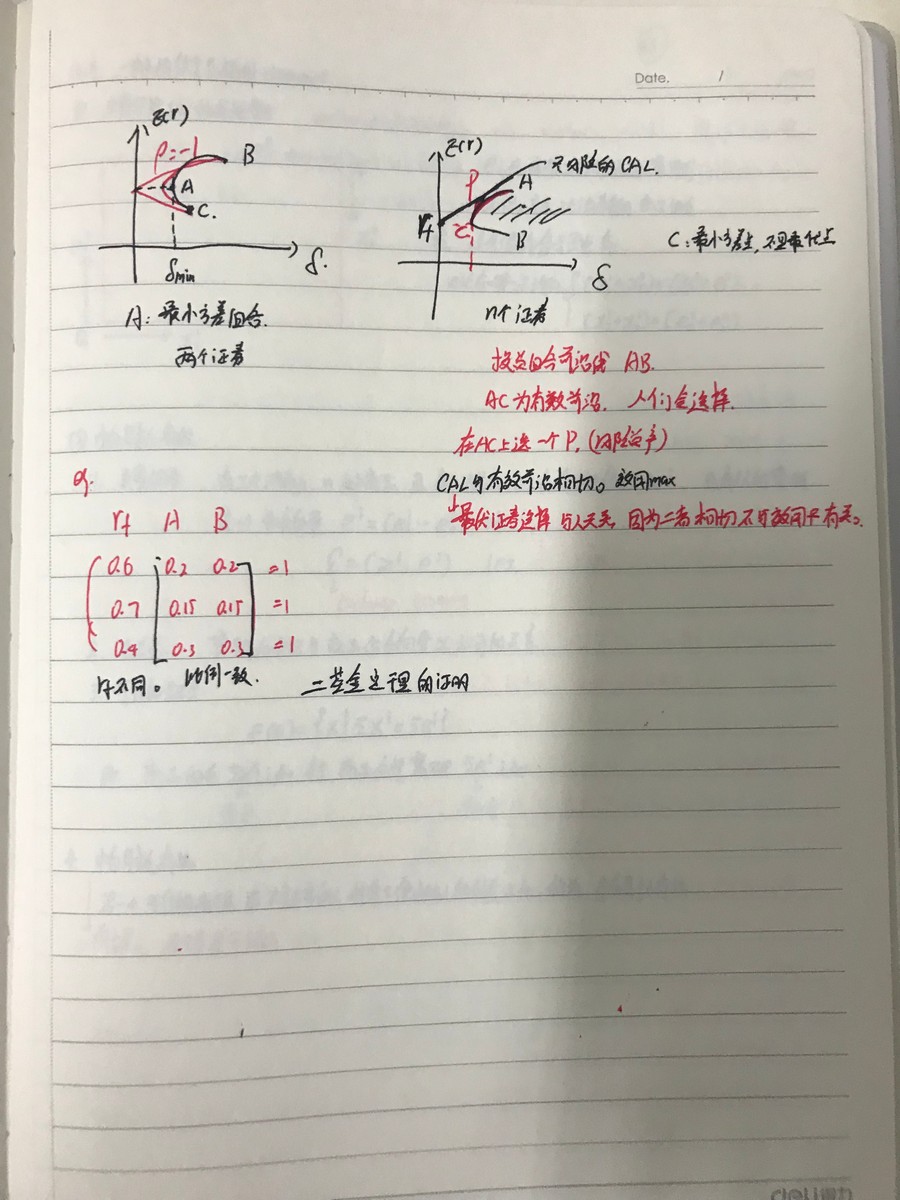 Date. /
E(r)
ρ=-1
B
A
C.
δmin
δ.
A: 最小方差组合.
两个证券
E(r)
不可能的CAL.
P
A
rf
C
B
C: 最小方差点, 不是最优点
δ
n个证券
投资组合前沿线 AB.
AC为有效前沿. 人们会选择
在AC上选一个P. (风险资产)
CAL与有效前沿相切。效用max
↓最优证券选择与人无关, 因为二者相切不与效用函有关。
rf A B
0.6 0.2 0.2 =1
0.7 0.15 0.15 =1
0.4 0.3 0.3 =1
rf不同。 比例一致.
二基金定理的证明